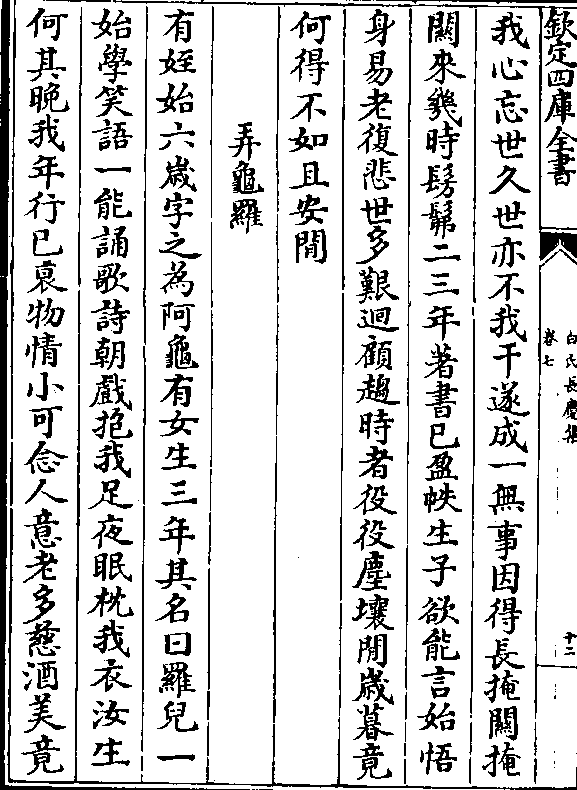 欽定四庫全書
白氏長慶集
卷七
十二
我心忘世久世亦不我干遂成一無事因得長掩關掩
關來幾時髣髴二三年著書已盈帙生子欲能言始悟
身易老復悲世多艱迴顧趨時者役役塵壤間歲暮竟
何得不如且安閒
弄龜羅
有姪始六歲字之為阿龜有女生三年其名曰羅兒一
始學笑語一能誦歌詩朝戲抱我足夜眠枕我衣汝生
何其晚我年行已衰物情小可念人意老多慈酒美竟